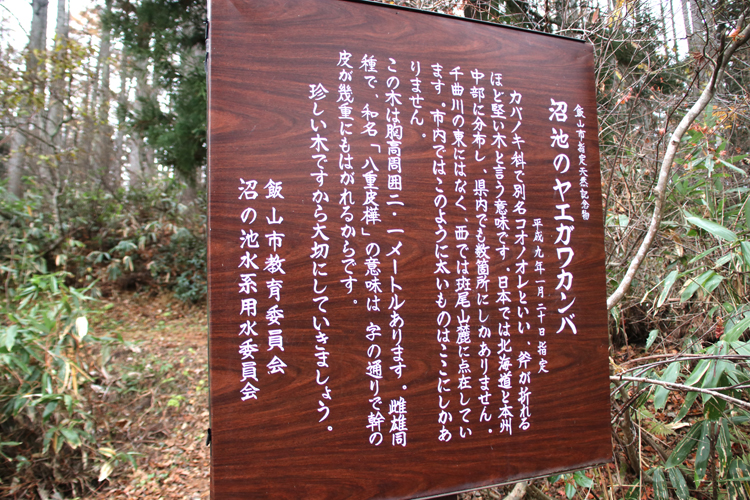 飯山市指定天然記念物
沼池のヤエガワカンバ
平成九年一月二十日指定
カバノキ科で別名コオノオレといい、斧が折れる
ほど堅い木と言う意味です。日本では北海道と本州
中部に分布し、県内でも数箇所にしかありません。
千曲川の東にはなく、西では斑尾山麓に点在してい
ます。市内ではこのように太いものはここにしかあ
りません。
この木は胸高周囲二・一メートルあります。雌雄同
種で、和名「八重皮樺」の意味は、字の通りで幹の
皮が幾重にもはがれるからです。
珍しい木ですから大切にしていきましょう。
飯山市教育委員会
沼の池水系用水委員会